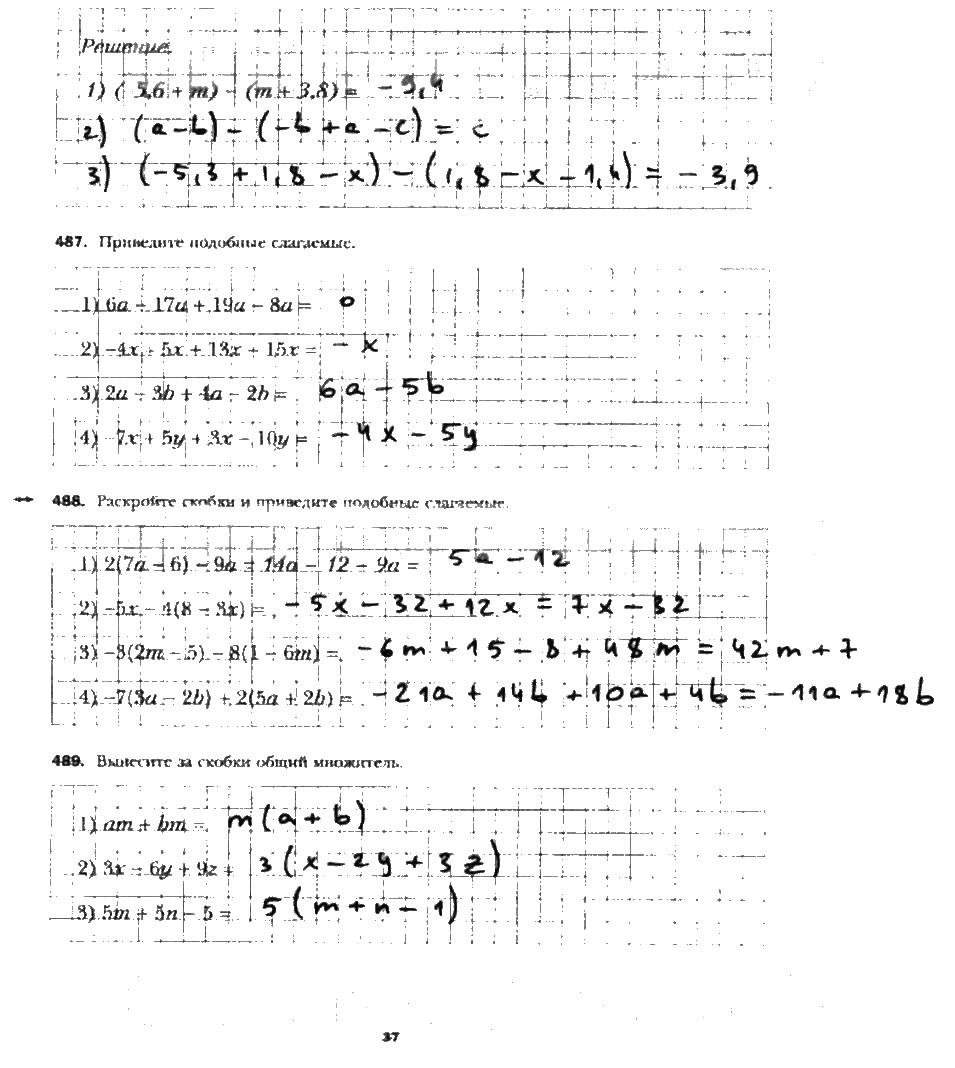 Решение.
1) (5,6 + m) - (m + 3,8) = - 9,4
2) (a - b) - (-b + a - c) = c
3) (-5,3 + 1,8 - x) - (1,8 - x - 1,4) = - 3,9
487. Приведите подобные слагаемые.
1) 6a - 17a + 19a - 8a = 0
2) -4x - 5x + 13x + 15x = - x
3) 2a - 3b + 4a - 2b = 6a - 5b
4) -7x + 5y + 3x - 10y = - 4x - 5y
↔ 488. Раскройте скобки и приведите подобные слагаемые.
1) 2(7a - 6) - 9a = 14a - 12 - 9a = 5a - 12
2) -5x - 4(8 - 3x) = - 5x - 32 + 12x = 7x - 32
3) -3(2m - 5) - 8(1 - 6m) = - 6m + 15 - 8 + 48m = 42m + 7
4) -7(3a - 2b) + 2(5a + 2b) = - 21a + 14b + 10a + 4b = - 11a + 18b
489. Вынесите за скобки общий множитель.
1) am + bm = m(a + b)
2) 3x - 6y + 9z = 3(x - 2y + 3z)
3) 5m + 5n - 5 = 5(m + n - 1)
37